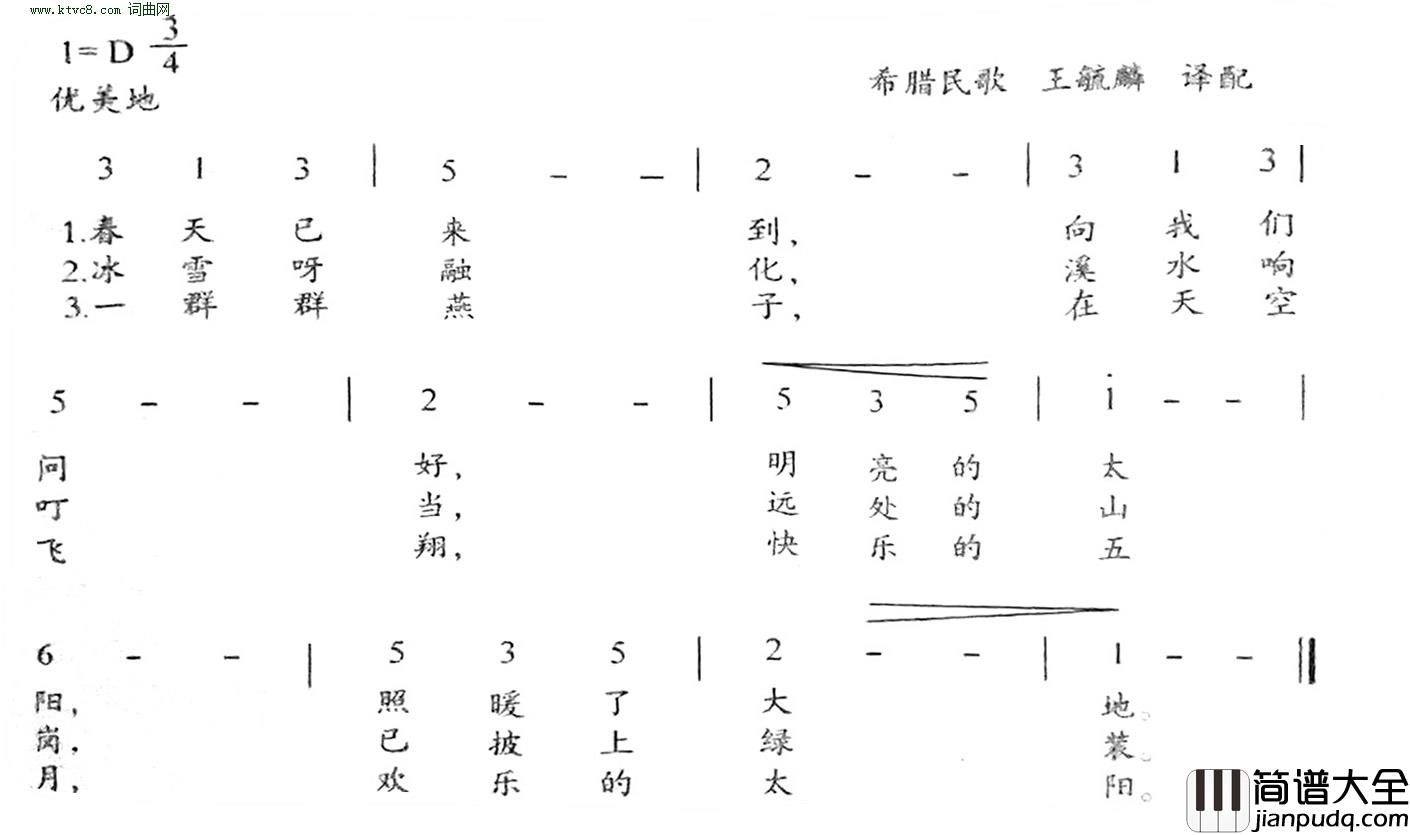 www.ktvc8.com 词曲网
1=D 3/4
优美地
希腊民歌 王毓麟 译配
3 1 3 | 5 - - | 2 - - | 3 1 3 |
1.春天已来到，向我们
2.冰雪呀融化，溪水响
3.一群群燕子，在天空
5 - - | 2 - - | 5 3 5 | i - - |
问好，明亮的太
叮当，远处的山
飞翔，快乐的五
6 - - | 5 3 5 | 2 - - | 1 - - ||
阳，照暖了大地。
岗，已披上绿装。
月，欢乐的太阳。
简谱大全
jianpudq.com